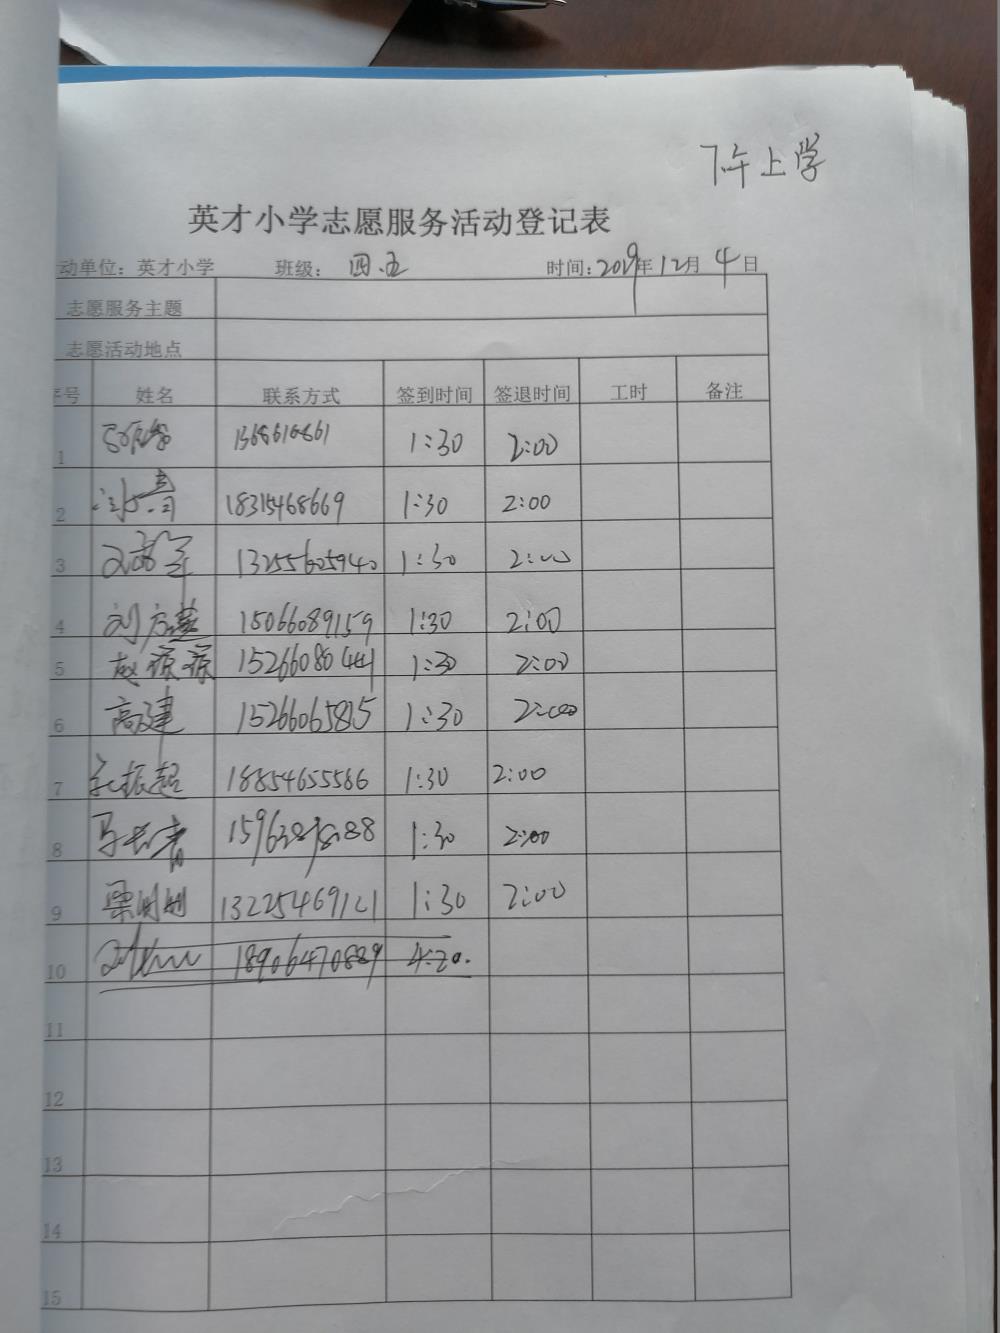 下午上学
英才小学志愿服务活动登记表
动单位：英才小学 班级：四.五 时间：2019年12月4日
志愿服务主题
志愿活动地点
序号 姓名 联系方式 签到时间 签退时间 工时 备注
1 1:30 2:00
2 18315468669 1:30 2:00
3 13255605940 1:30 2:00
4 刘方莲 15066089159 1:30 2:00
5 赵琼琼 15266080441 1:30 2:00
6 高建 15266065815 1:30 2:00
7 振超 18854655586 1:30 2:00
8 马长青 1:30 2:00
9 梁明明 13225469121 1:30 2:00
10 18906470889 4:20.
11
12
13
14
15